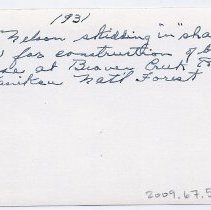 1931
Nelson skidding "in" sha
for construction of b
se at Beaver Creek
Nat'l Forest
2009.67.5